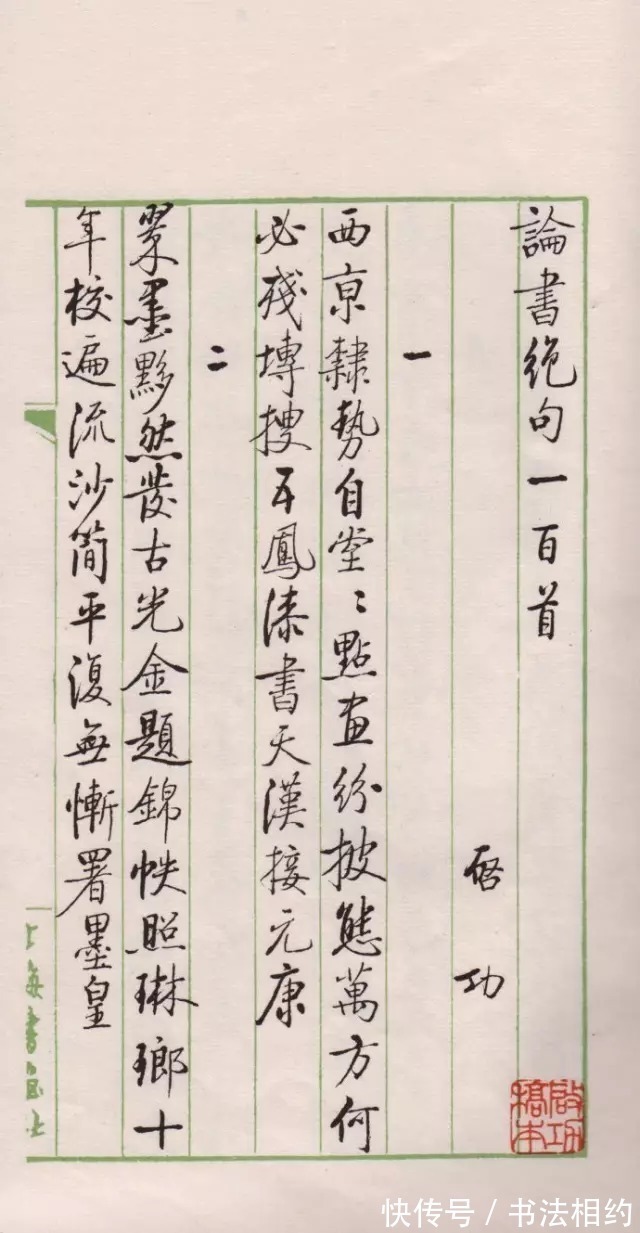 論書絕句一百首
啓功
一
西京隸勢自堂〻點畫紛披態萬方何
必殘塼搜五鳳漆書天漢接元康
二
翠墨黟然發古光金題錦帙照琳瑯十
年校遍流沙簡平復無慚署墨皇
啟功稿本
上海書畫社
快传号/书法相约